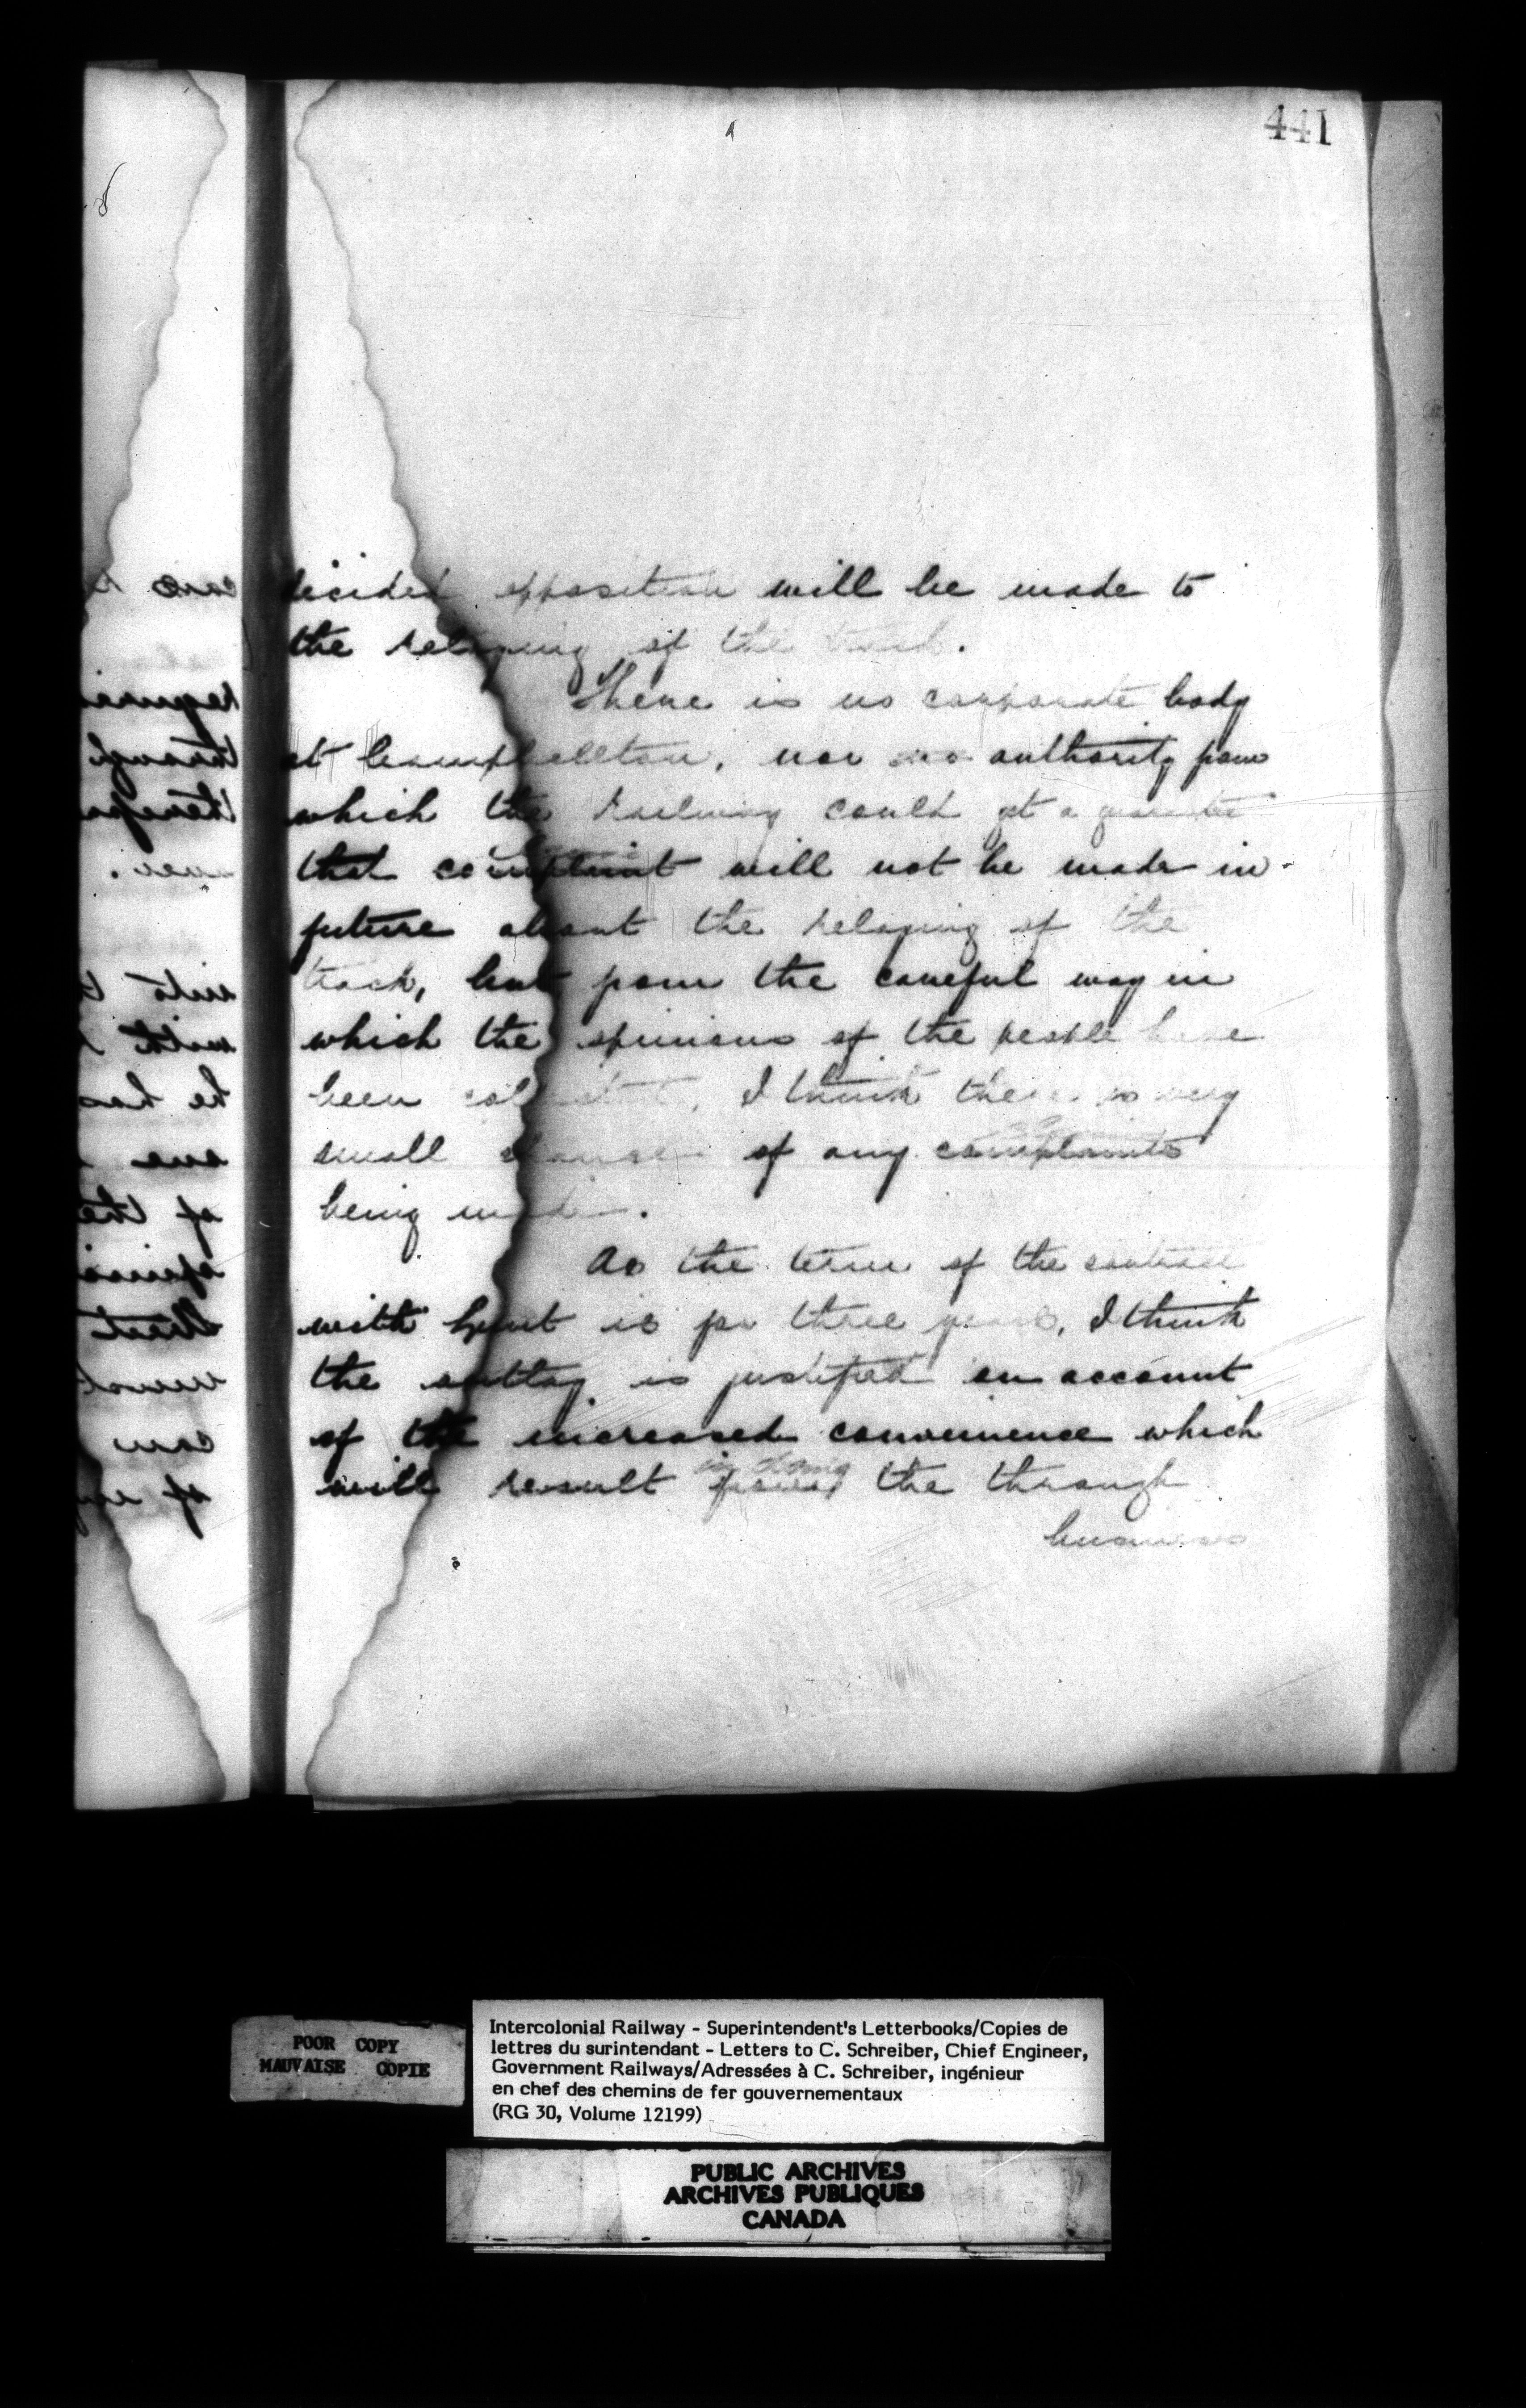 441
decided opposition will be made to
the relaying of the track.
There is no corporate body
at Campbellton, nor authority from
which the Railway could get a
that complaint will not be made in
future about the relaying of the
track, but from the careful way in
which the opinions of the people have
been collected, I think there is very
small chance of any complaints
being made.
As the term of the contract
with is for three years, I think
the outlay is justified on account
of the increased convenience which
will result in doing the through
business
POOR COPY
MAUVAISE COPIE
Intercolonial Railway - Superintendent's Letterbooks/Copies de
lettres du surintendant - Letters to C. Schreiber, Chief Engineer,
Government Railways/Adressées à C. Schreiber, ingénieur
en chef des chemins de fer gouvernementaux
(RG 30, Volume 12199)
PUBLIC ARCHIVES
ARCHIVES PUBLIQUES
CANADA